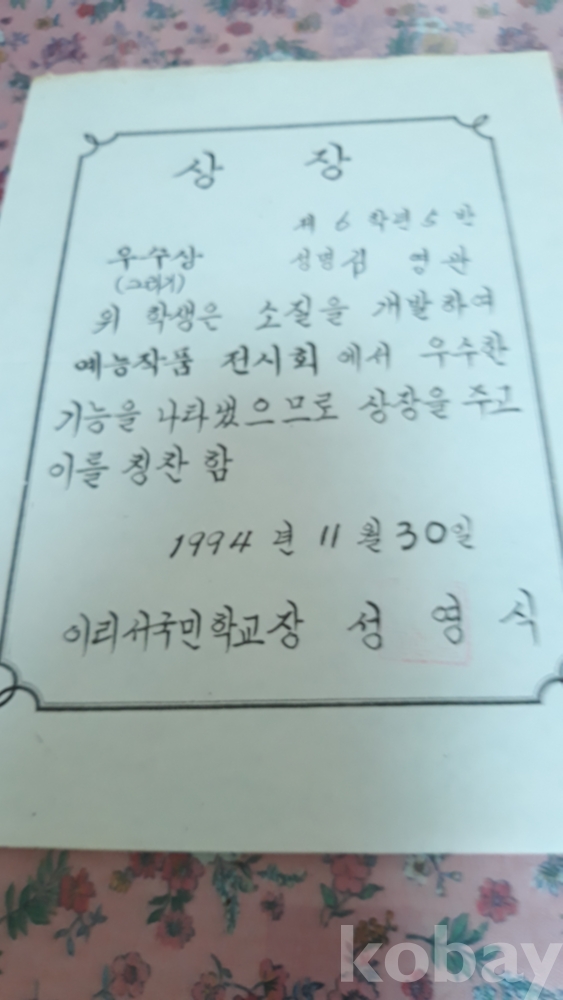 상 장
제 6 학년 5 반
우수상 성명 김 영 관
(그리기)
위 학생은 소질을 개발하여
예능작품 전시회에서 우수한
기능을 나타냈으므로 상장을 주고
이를 칭찬 함
1994 년 11 월 30 일
이리서국민학교장 성 영 식
kobay